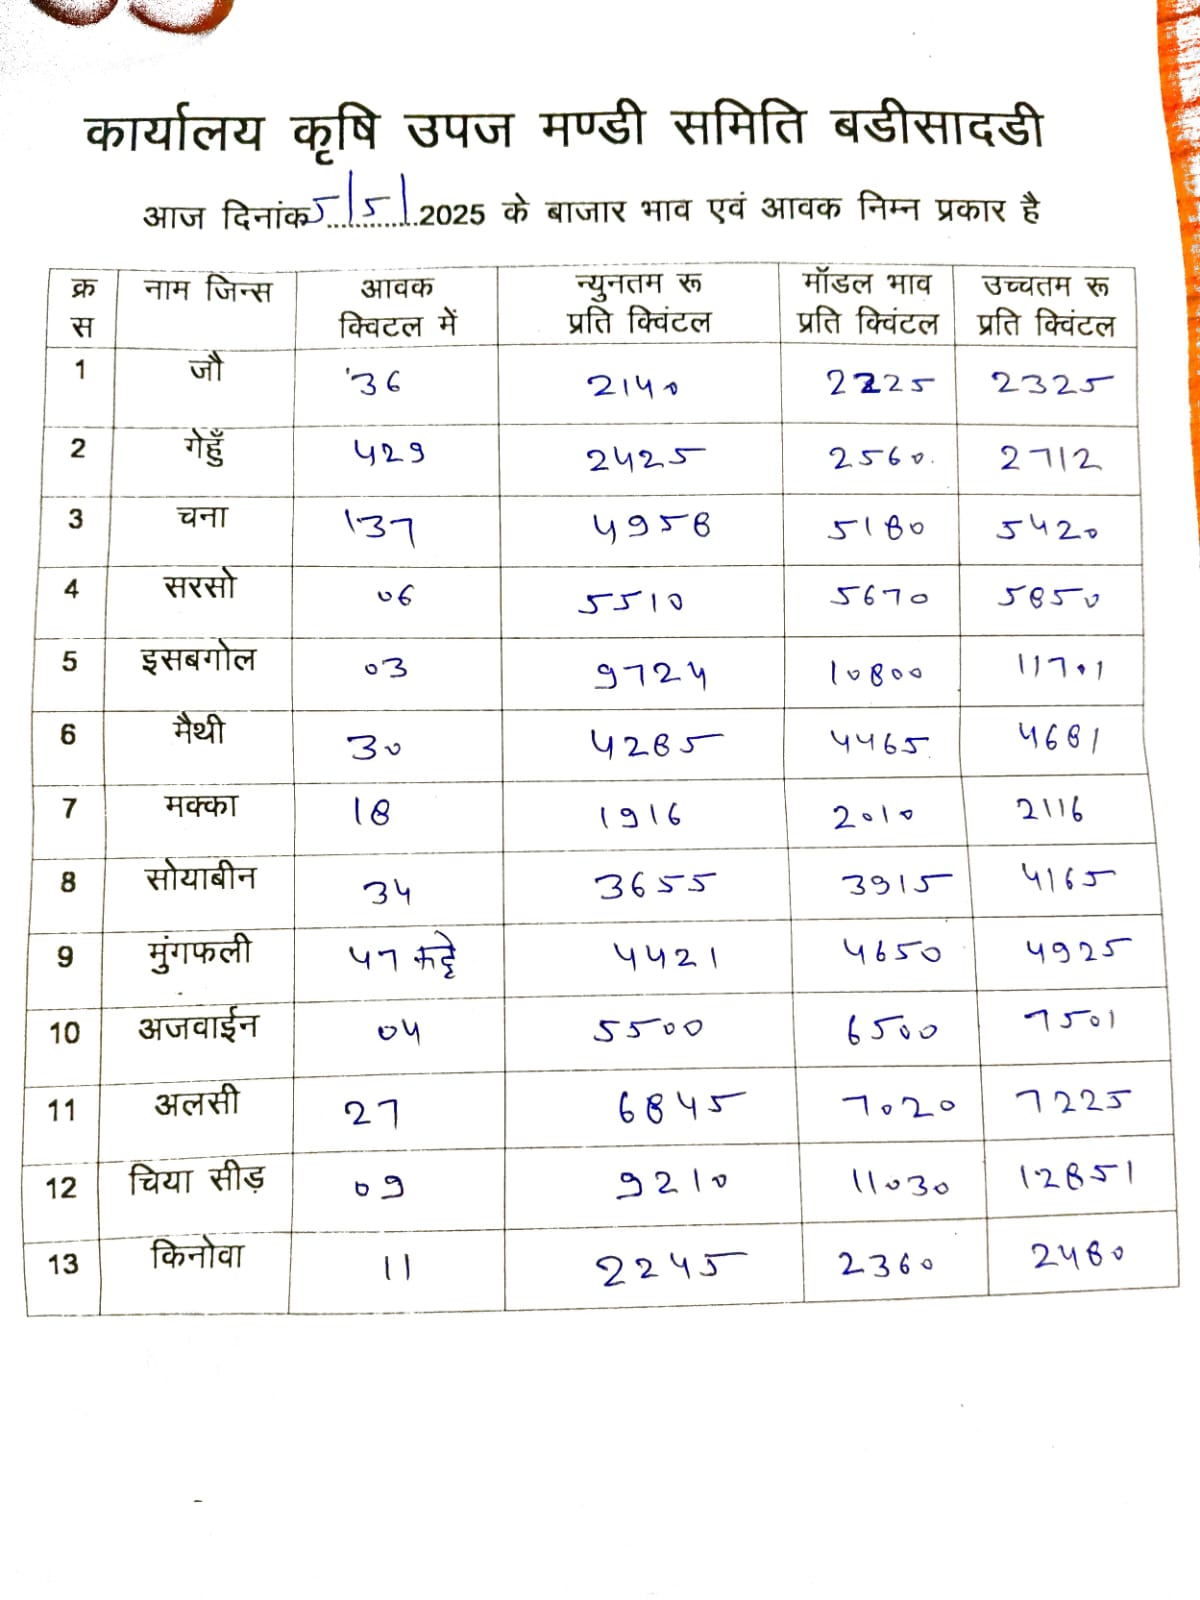 कार्यालय कृषि उपज मण्डी समिति बडीसादडी
आज दिनांक 5/5/ 2025 के बाजार भाव एवं आवक निम्न प्रकार है
क्र स नाम जिन्स आवक क्विटल में न्युनतम रू प्रति क्विंटल मॉडल भाव प्रति क्विंटल उच्चतम रू प्रति क्विंटल
1 जौ 36 2140 2225 2325
2 गेहुँ 429 2425 2560 2712
3 चना 137 4958 5180 5420
4 सरसो 06 5510 5670 5850
5 इसबगोल 03 9724 10800 11701
6 मैथी 30 4285 4465 4681
7 मक्का 18 1916 2010 2116
8 सोयाबीन 34 3655 3915 4165
9 मुंगफली 47 कट्टे 4421 4650 4925
10 अजवाईन 04 5500 6500 7501
11 अलसी 27 6845 7020 7225
12 चिया सीड़ 09 9210 11030 12851
13 किनोवा 11 2245 2360 2480